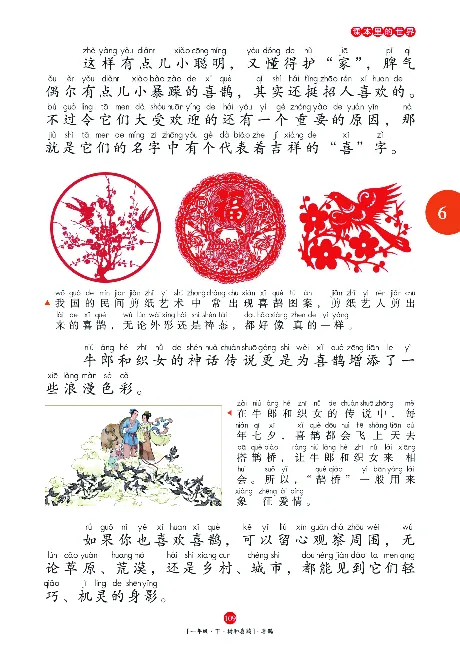 课本里的世界
zhè yàng yǒu diǎnr xiǎo cōng míng yòu dǒng de hù jiā pí qi
这样有点儿小聪明，又懂得护“家”，脾气
ǒu ěr yǒu diǎnr xiǎo bào zào de xǐ què qí shí hái tǐng zhāo rén xǐ huan de
偶尔有点儿小暴躁的喜鹊，其实还挺招人喜欢的。
bú guò lìng tā men dà shòu huān yíng de hái yǒu yí gè zhòng yào de yuán yīn nà
不过令它们大受欢迎的还有一个重要的原因，那
jiù shì tā men de míng zì zhōng yǒu gè dài biǎo zhe jí xiáng de xǐ zì
就是它们的名字中有个代表着吉祥的“喜”字。
福
6
wǒ guó de mín jiān jiǎn zhǐ yì shù zhōng cháng chū xiàn xǐ què tú àn jiǎn zhǐ yì rén jiǎn chū
▲我国的民间剪纸艺术中常出现喜鹊图案，剪纸艺人剪出
lái de xǐ què wú lùn wài xíng hái shì shén tài dōu hǎo xiàng zhēn de yí yàng
来的喜鹊，无论外形还是神态，都好像真的一样。
niú láng hé zhī nǚ de shén huà chuán shuō gèng shì wèi xǐ què zēng tiān le yì
牛郎和织女的神话传说更是为喜鹊增添了一
xiē làng màn sè cǎi
些浪漫色彩。
zài niú láng hé zhī nǚ de chuán shuō zhōng měi
◀在牛郎和织女的传说中，每
nián qī xī xǐ què dōu huì fēi shàng tiān qù
年七夕，喜鹊都会飞上天去
dā què qiáo ràng niú láng hé zhī nǚ lái xiāng
搭鹊桥，让牛郎和织女来相
huì suǒ yǐ què qiáo yì bān yòng lái
会。所以，“鹊桥”一般用来
xiàng zhēng ài qíng
象征爱情。
rú guǒ nǐ yě xǐ huan xǐ què kě yǐ liú xīn guān chá zhōu wéi wú
如果你也喜欢喜鹊，可以留心观察周围，无
lùn cǎo yuán huāng mò hái shì xiāng cūn chéng shì dōu néng jiàn dào tā men qīng
论草原、荒漠，还是乡村、城市，都能见到它们轻
qiǎo jī líng de shēn yǐng
巧、机灵的身影。
109